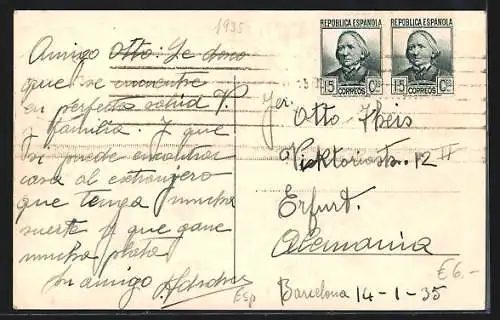 1935
Amigo Otto: Le deseo
que se encuentre
en perfecta salud V.
y familia. Y que
si puede encontrar
casa al extranjero
que tenga mucha
suerte y que gane
mucha plata
su amigo
REPUBLICA ESPAÑOLA
15 Cts
CORREOS
REPUBLICA ESPAÑOLA
15 Cts
CORREOS
Otto Theis
Viktoriastr. 12 II
Erfurt.
Alemania
€ 6.-
Esp
Barcelona 14-1-35